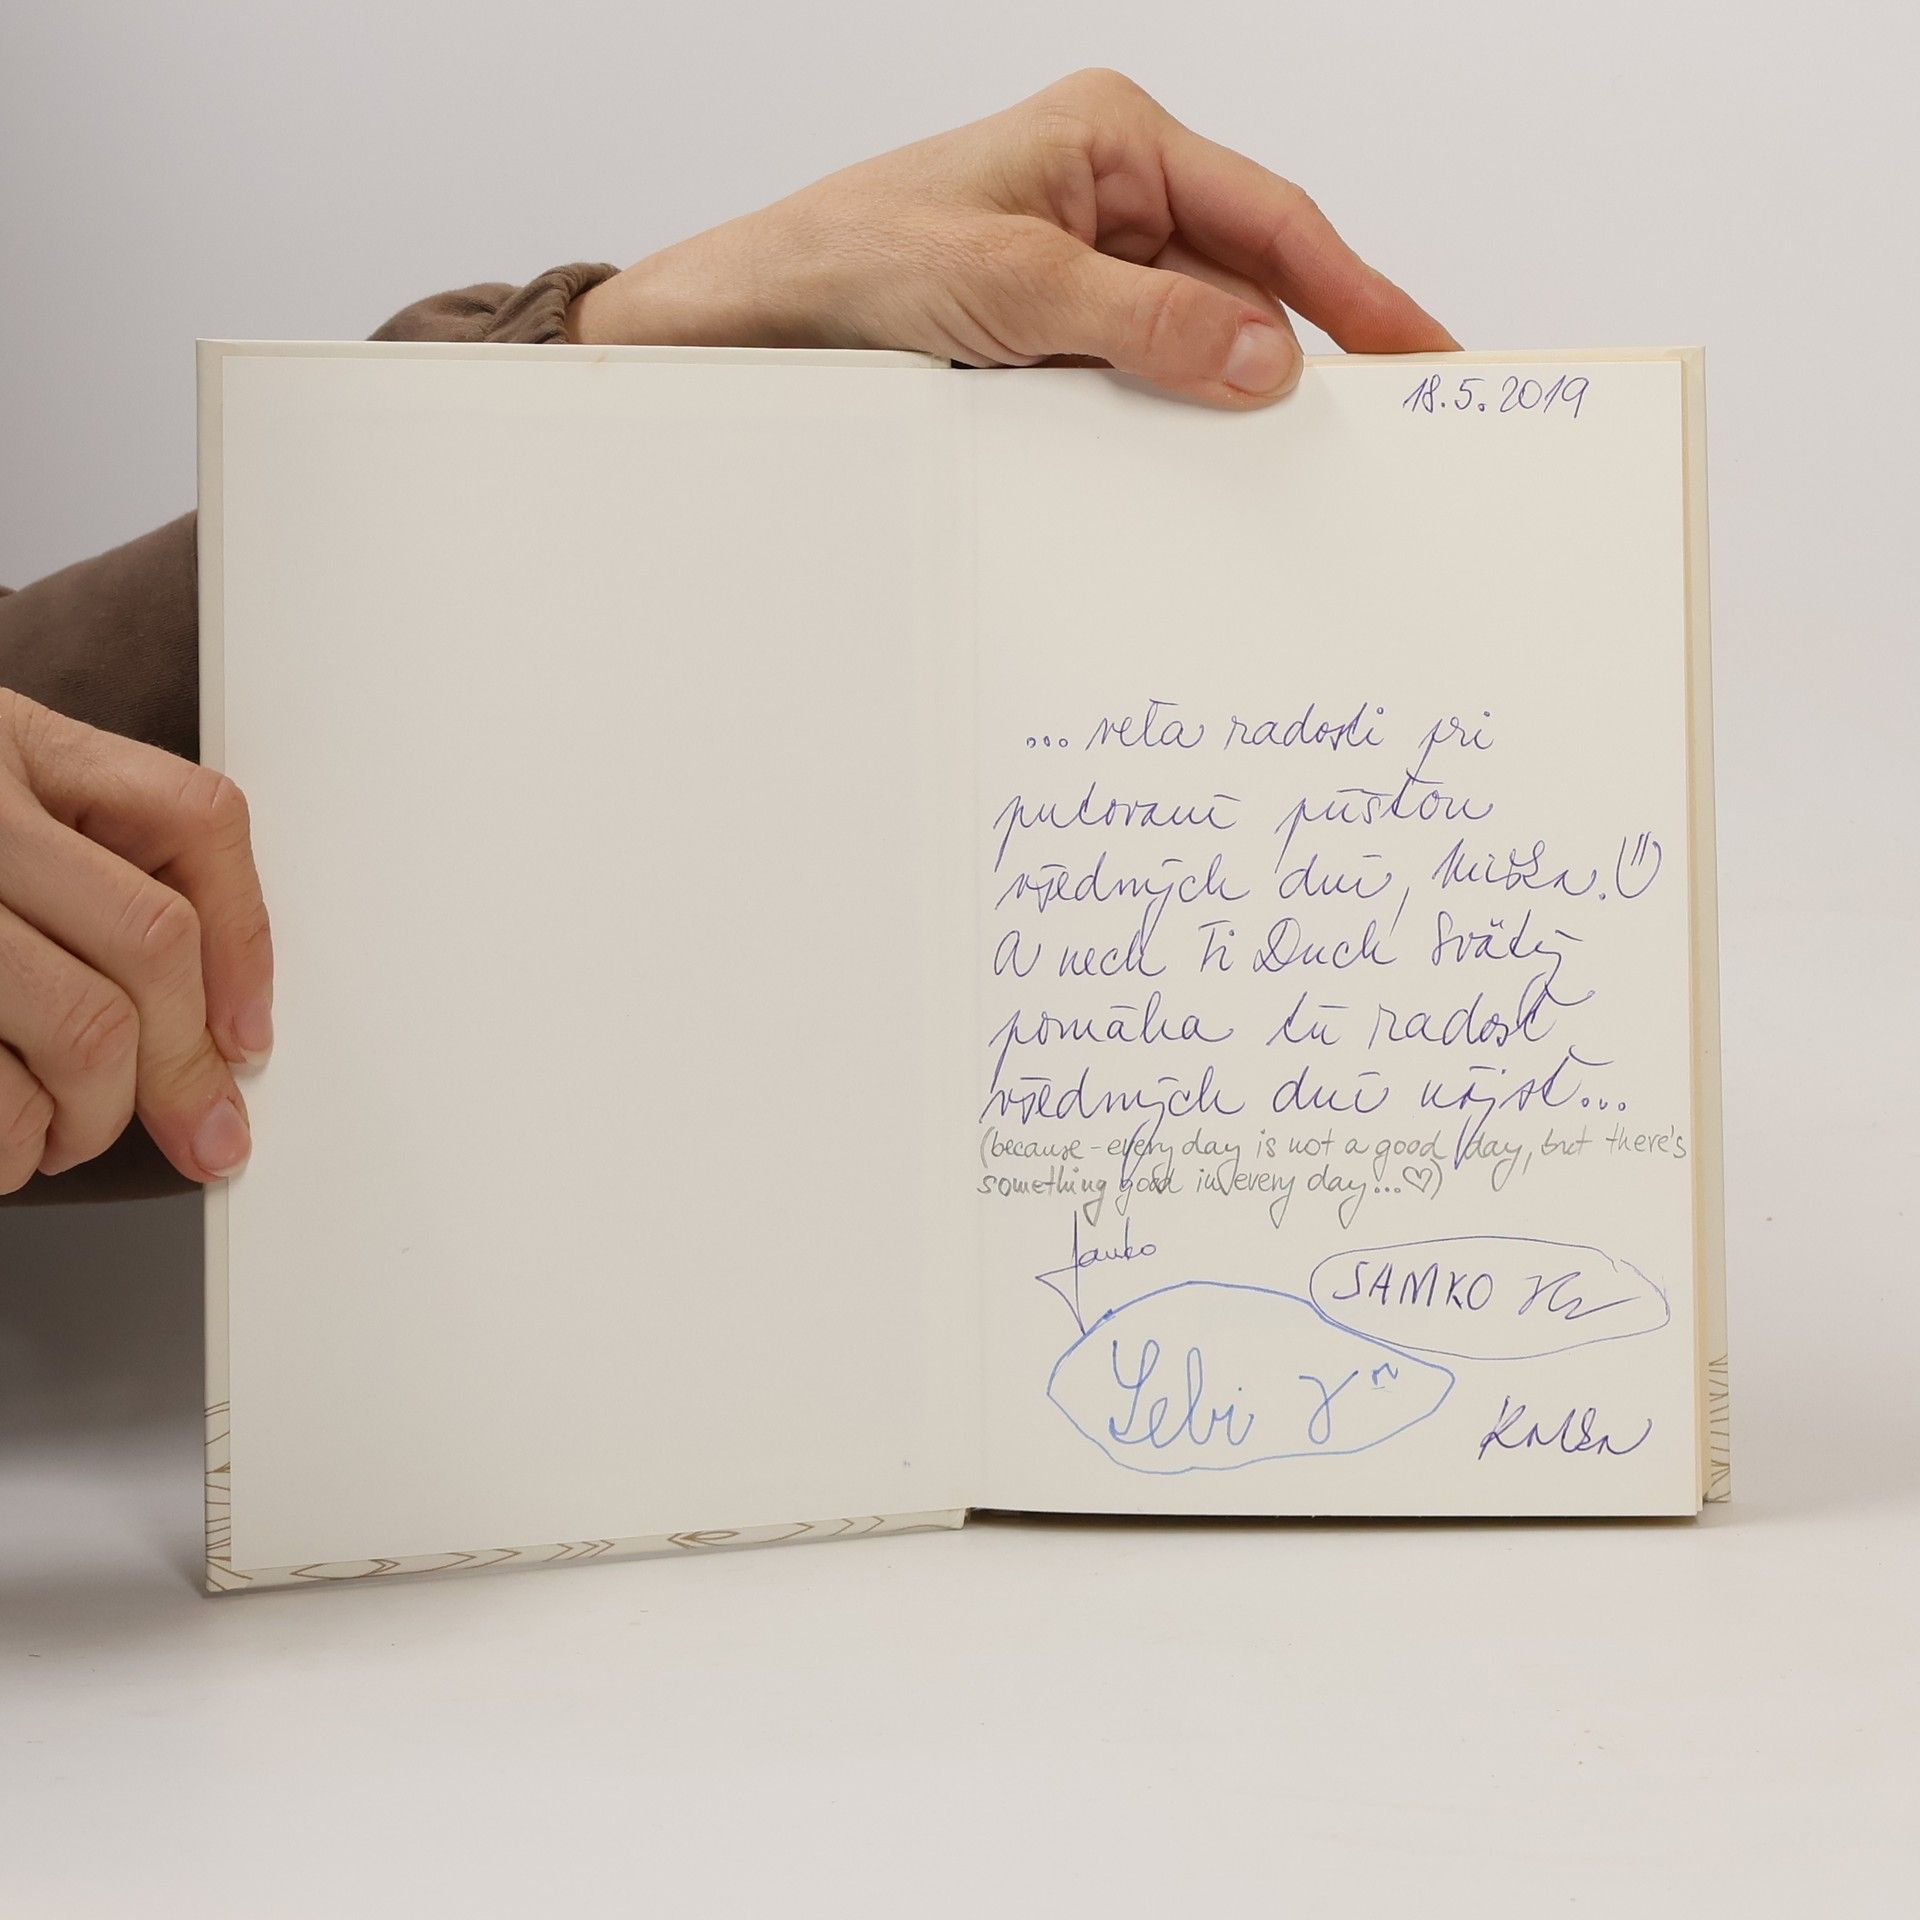 18.5.2019
... veľa radosti pri
putovaní púšťou
všedných dní, Miška.
A nech Ti Duch Svätý
pomáha tú radosť
všedných dní nájsť...
(because - every day is not a good day, but there's
something good in every day...♡)
Janko
SAMKO
Sebi